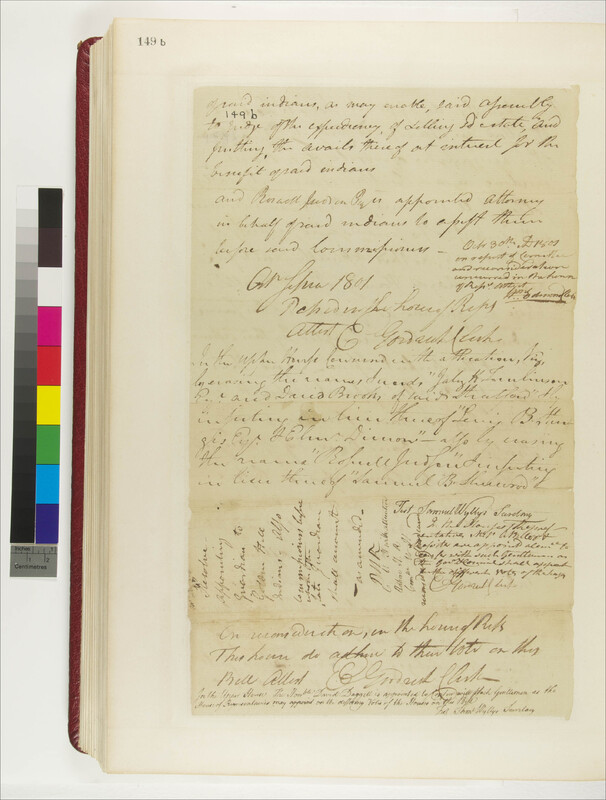 149 b
of said indians, as may enable, said assembly
149 b
to judge of the expediency, of selling sd estate, and
putting, the avails thereof at interest for the
benefit of said indians
and Roswell Judson Esqr is appointed attorney
in behalf of said indians to assist them
before said Commissioners –
Octr 30th AD 1801
on report of Committee
and reconsideration
concurred in
of Reps. Attest
Edmond
Octr Session 1801
Passed in the house of Reps
Attest E Goodrich Clerk
In the Upper House concurred in with alteration, viz,
by erasing the names & words, "Jabez H Tomlinson
Esqr and David Brooks of said Stratford" &
inserting in lieu thereof "Lewis B
Esqr & Elnr. " – also by erasing
the name "Roswell Judson" & inserting
in lieu thereof "Samuel B Sherwood"
Test Samuel Wyllys Secretary
In the House of Representatives
Mr Miller &
are appointed
to confer with such Gentlemen as
the Honl Council shall appoint
on the different votes of the houses
E Goodrich Clerk
Resolve
appointing
Guardian to
Golden Hill
Indians, also
Commissioners before
whom the Guardian
shall account
as amended
On reconsideration, in the house of Reps
This house do adhere to their Vote on this
Bill Attest E Goodrich Clerk
In the Upper House. The Honbl David Daggett is appointed to Confer with such Gentlemen as the
House of Representatives may appoint on the differing Votes of the Houses on this Bill
Test Saml Wyllys Secretary
Centimetres